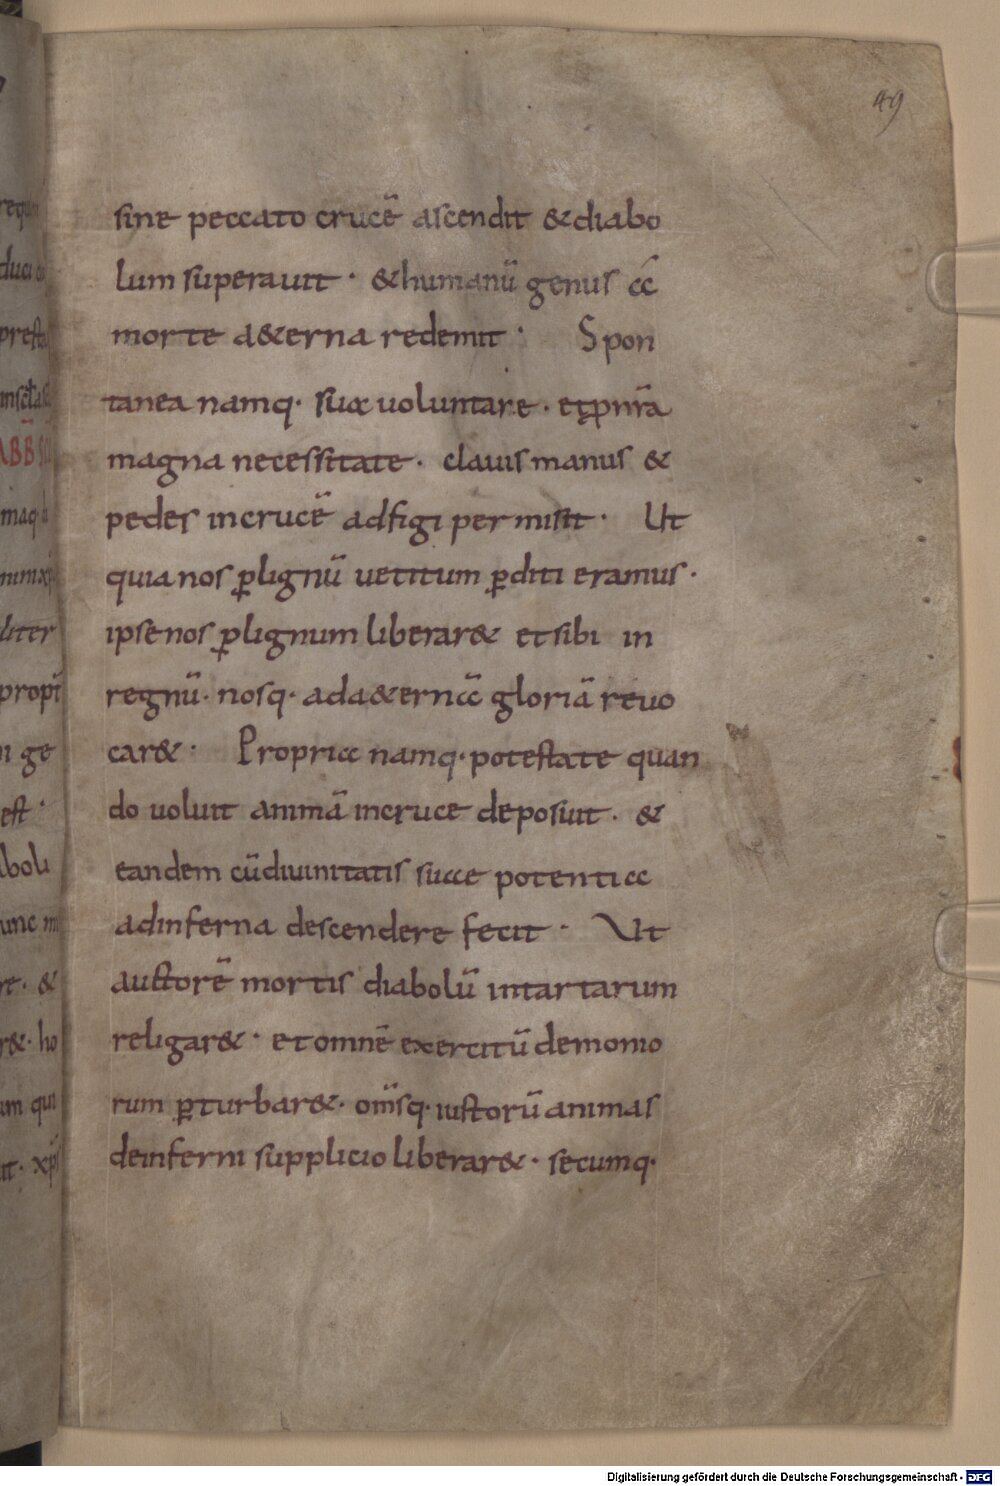 49
sine peccato crucē ascendit & diabo
lum superauit · & humanū genus a
morte a&erna redemit · Spon
tanea namq· sua uoluntate · et p nr̄a
magna necessitate · clauis manus &
pedes in crucē adfigi permisit · Ut
quia nos ꝑ lignū uetitum ꝑditi eramus ·
ipse nos ꝑ lignum liberar& et sibi in
regnū · nosq· ad a&ernā gloriā reuo
car& · Propria namq· potestate quan
do uoluit animā in cruce deposuit · &
eandem cū diuinitatis suae potentia
ad inferna descendere fecit · Ut
auctorē mortis diabolū in tartarum
religar& · et omnē exercitū demonio
rum ꝑturbar& · om̄sq· iustorū animas
de inferni supplicio liberar& · secumq·
Digitalisierung gefördert durch die Deutsche Forschungsgemeinschaft - DFG